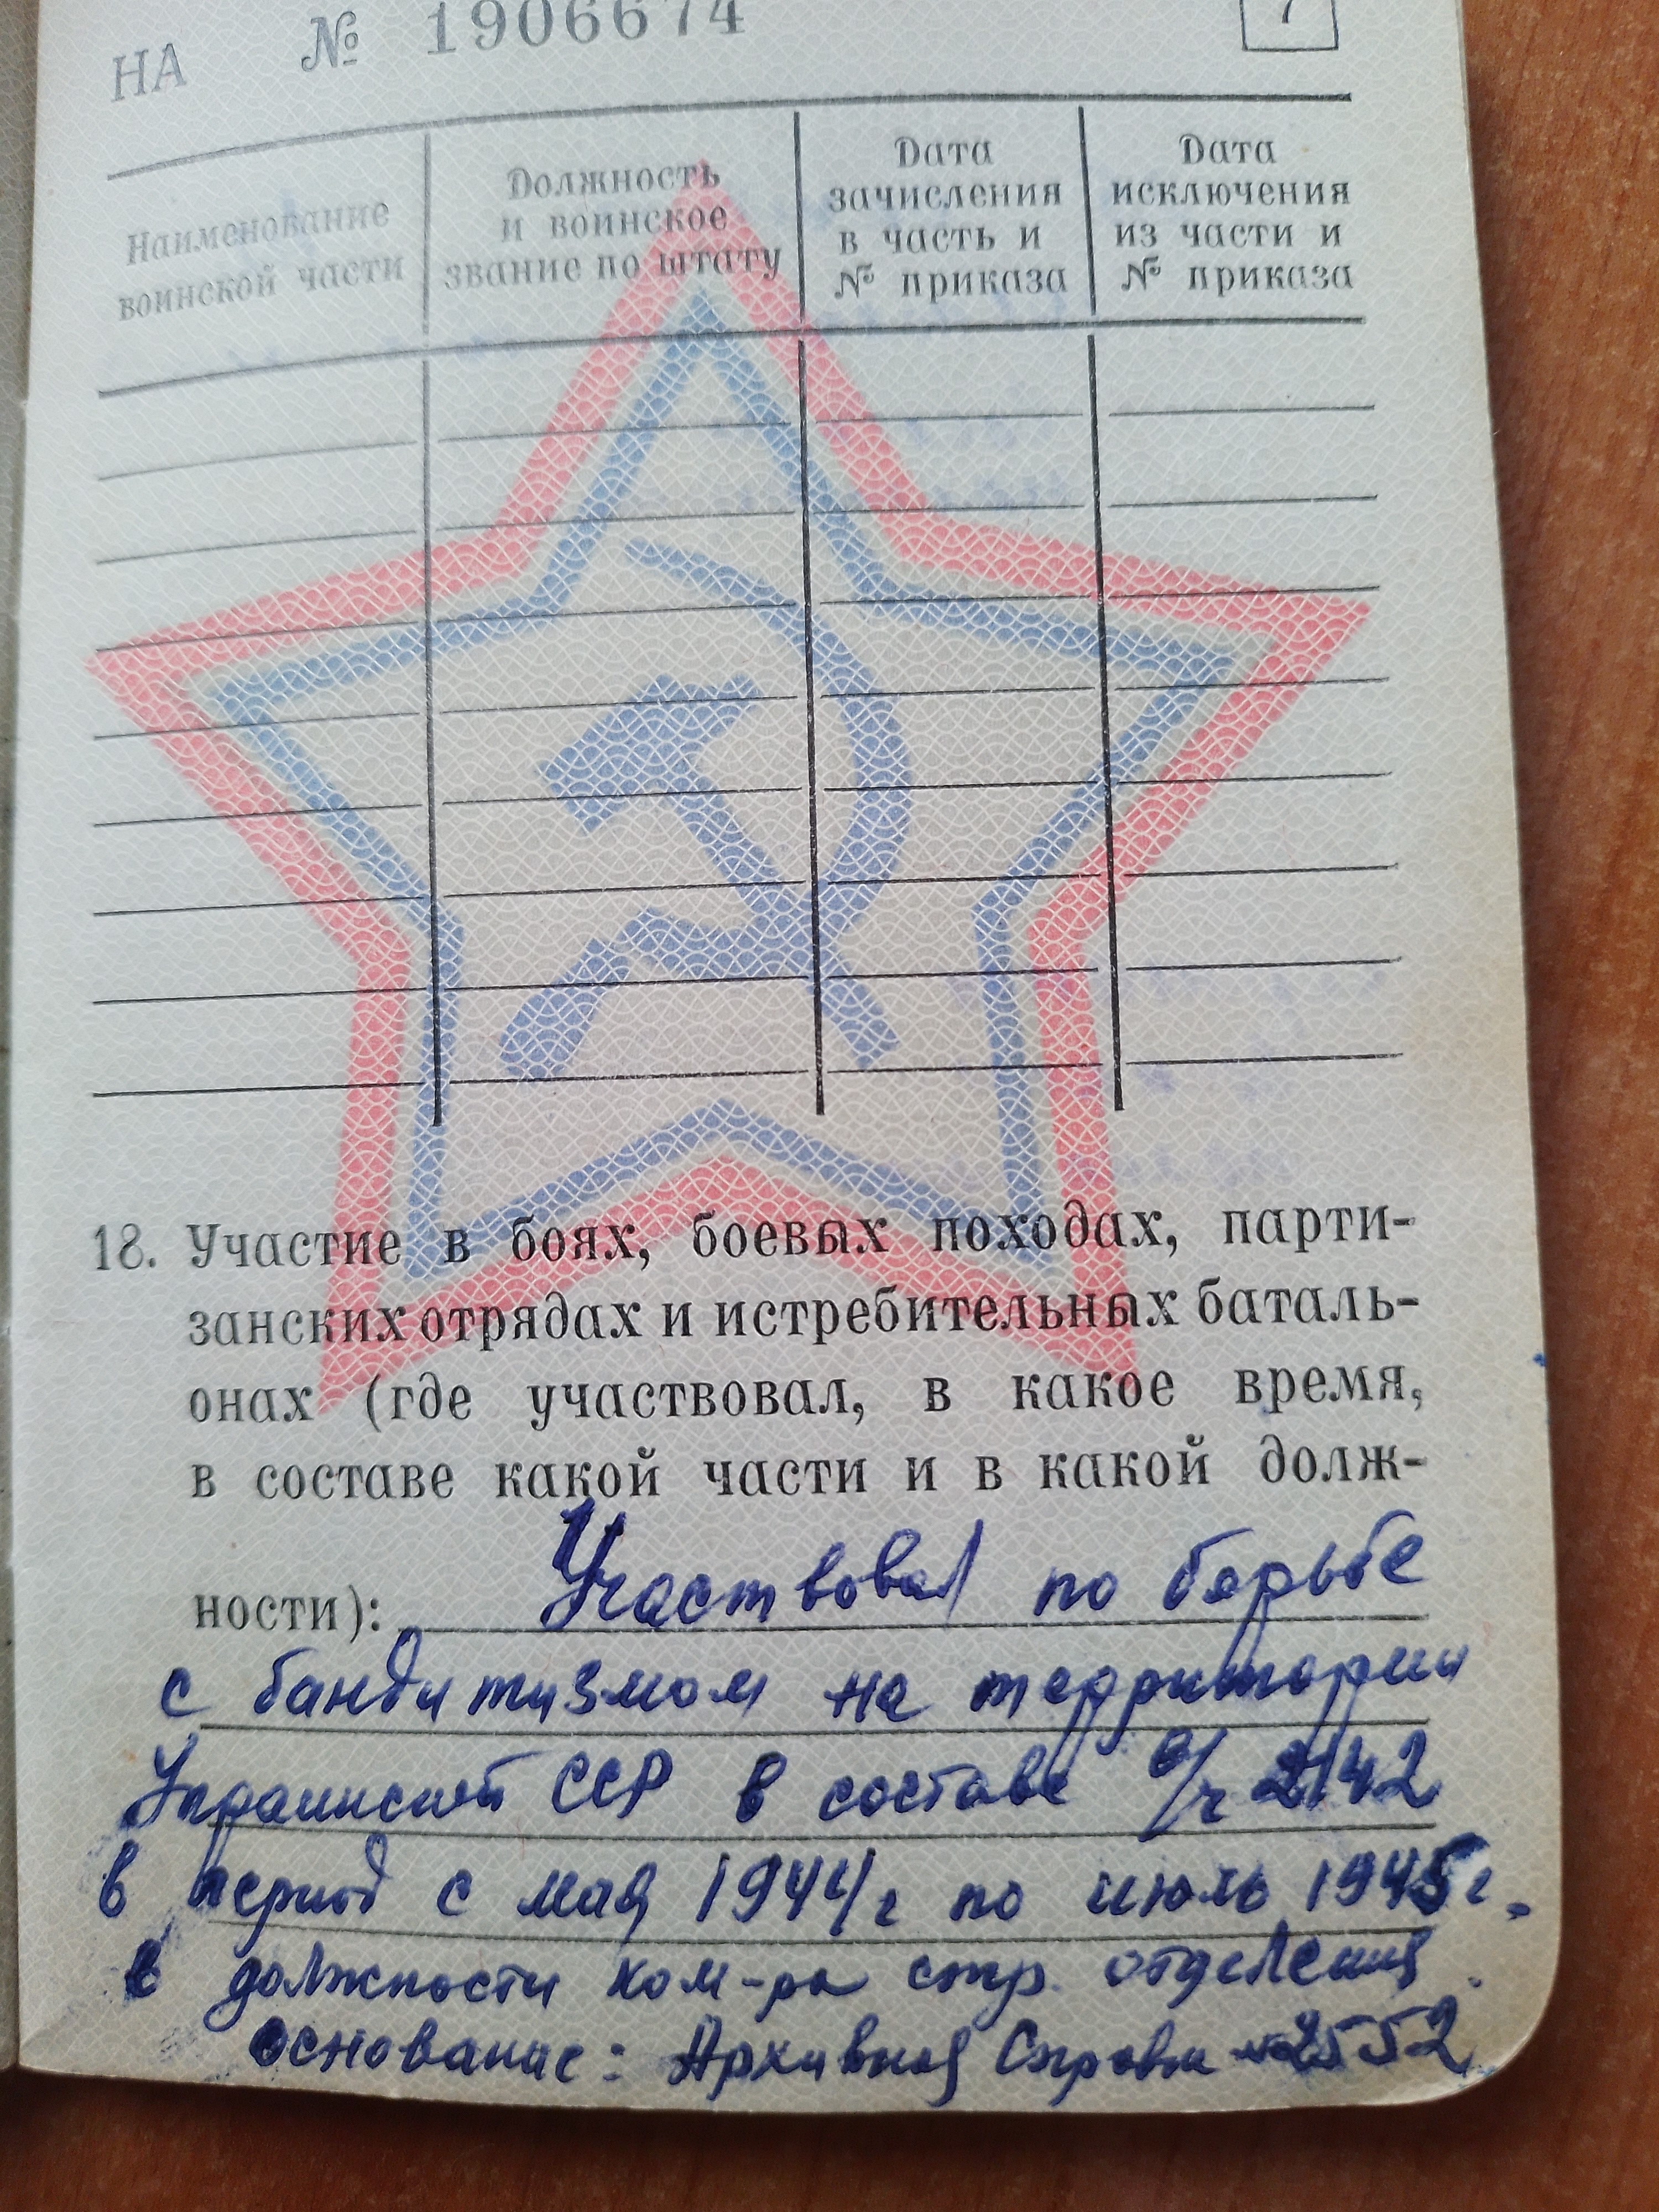 НА № 1906674 7
Наименование воинской части
Должность и воинское звание по штату
Дата зачисления в часть и № приказа
Дата исключения из части и № приказа
18. Участие в боях, боевых походах, парти-
занских отрядах и истребительных баталь-
онах (где участвовал, в какое время,
в составе какой части и в какой долж-
ности): Участвовал по борьбе
с бандитизмом на территории
Украинской ССР в составе в/ч 2142
в период с мая 1944 г по июль 1945 г.
в должности ком-ра стр. отделения.
Основание: Архивная Справка № 2552